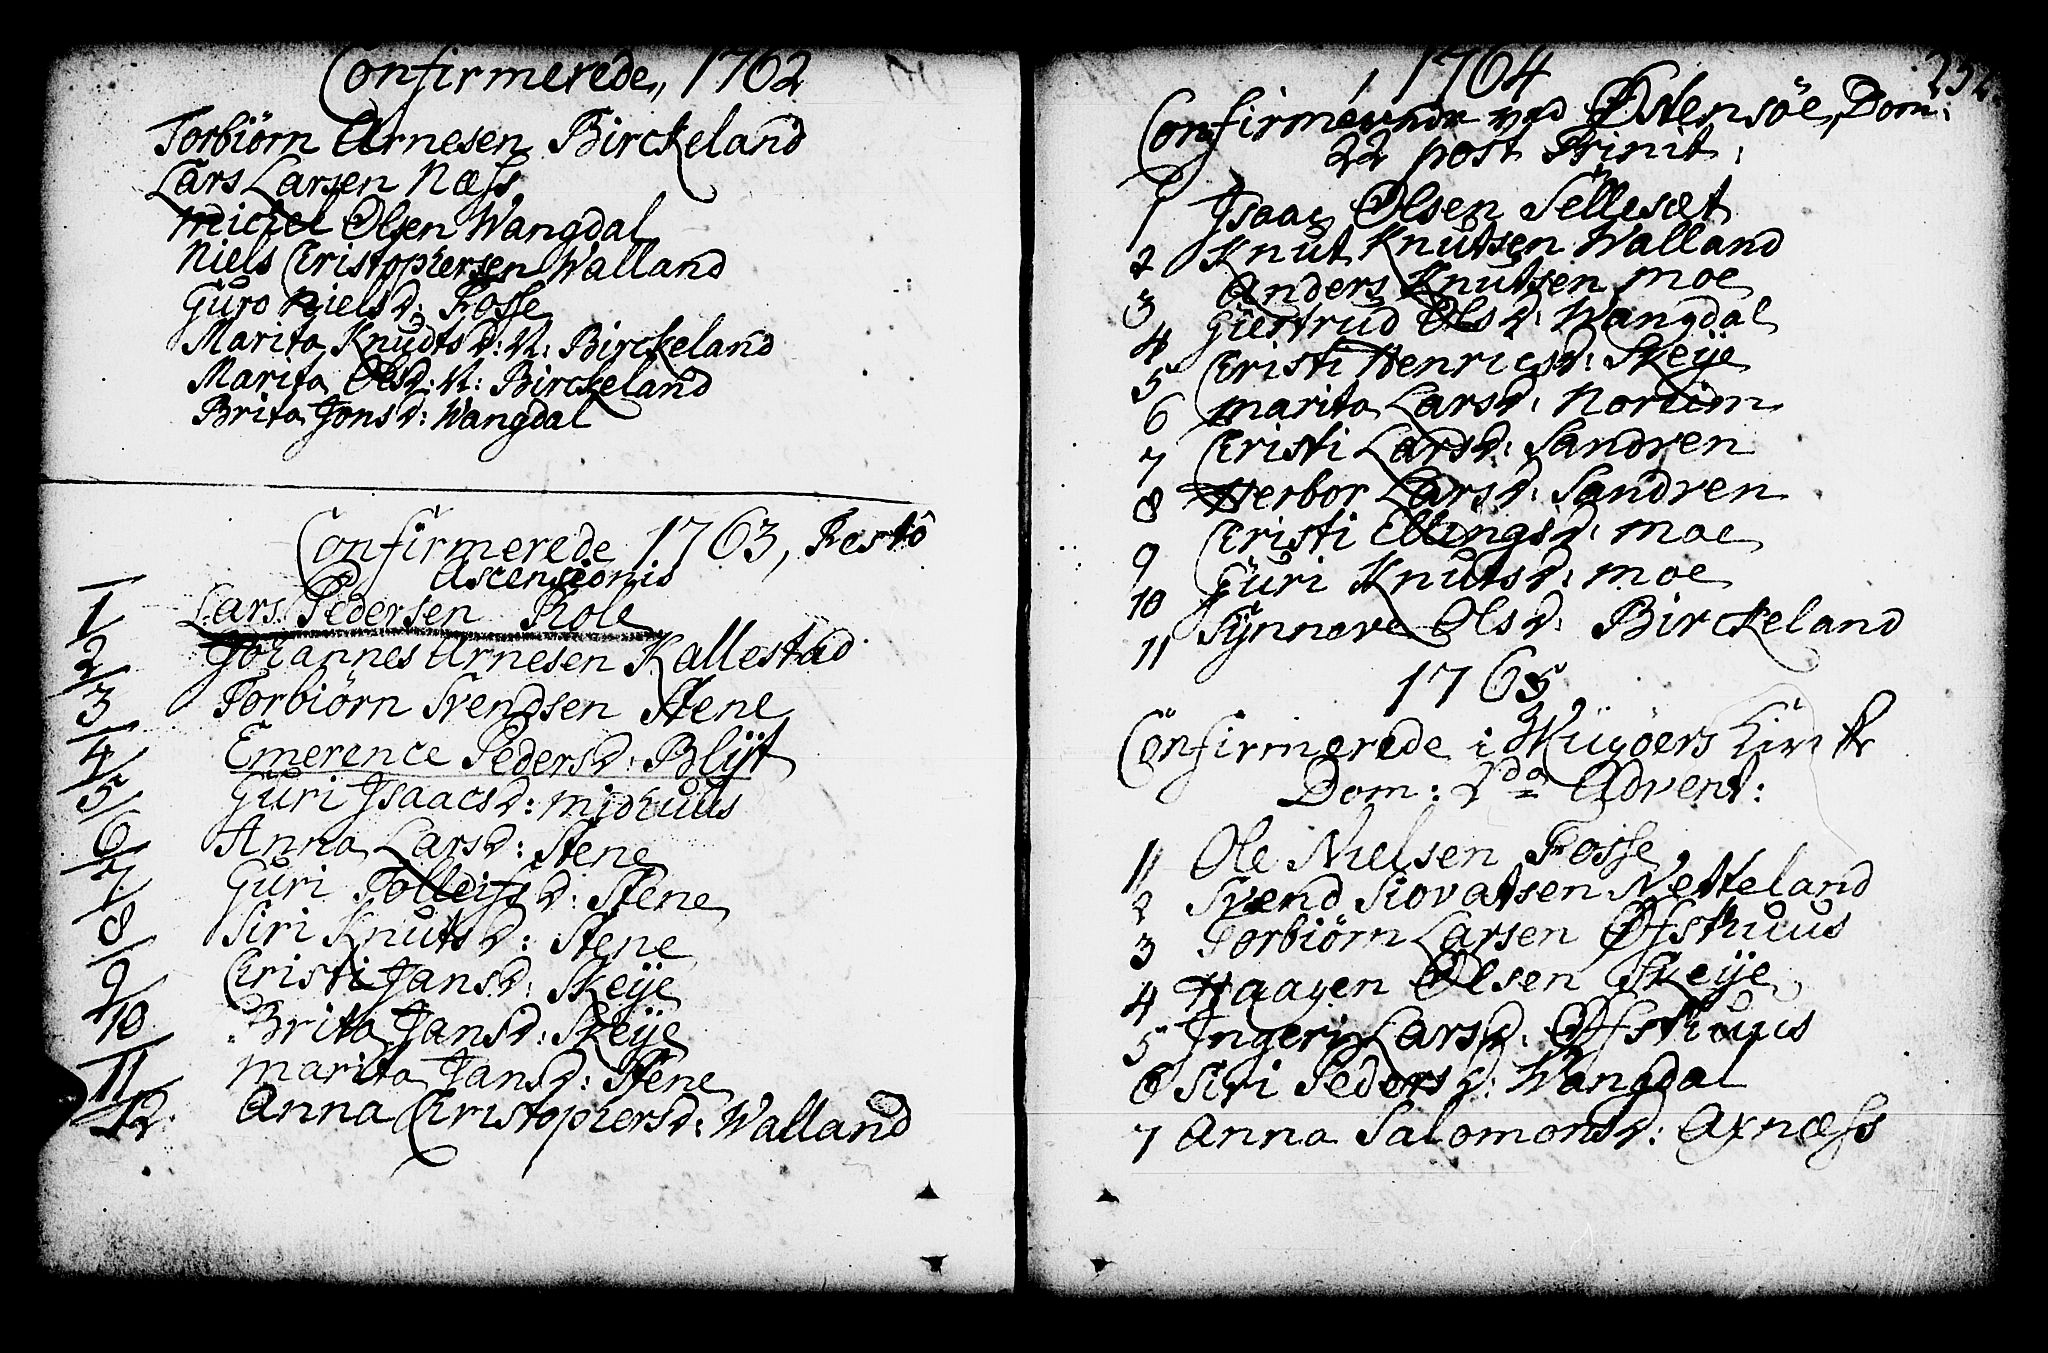 Confirmerede, 1762
Torbiörn Arnesen Birckeland
Lars Larsen Næss
Michel Olsen Wangdal
Niels Christophersen Walland
Guro Nielsd: Fosse
Marita Knudtsd: N: Birckeland
Marita Olsd: N: Birckeland
Brita Jonsd: Wangdal
Confirmerede 1763, Festo
Ascensionis
1 Lars Pedersen Role
2 Johannes Arnesen Kallestad
3 Torbiörn Svendsen Stene
4 Emerence Pedersd: Blijt
5 Guri Isaacsd: Midhuus
6 Anna Larsd: Stene
7 Guri Tolleifsd: Stene
8 Siri Knutsd: Stene
9 Christi Jansd: Skeije
10 Brita Jansd: Skeije
11 Marita Jansd: Stene
12 Anna Christophersd: Walland
1764
Confirmerede ved Östensöe, Dom:
22 post Trinit:
1 Isaac Olsen Sellesæt
2 Knut Knutsen Walland
3 Anders Knutsen Moe
4 Giertrud Olsd: Wangdal
5 Christi Henricsd: Skeije
6 Marita Larsd: Noriim
7 Christi Larsd: Sandven
8 Herbor Larsd: Sandven
9 Christi Ellingsd: Moe
10 Guri Knutsd: Moe
11 Synneve Olsd: Birckeland
1765
Confirmerede i Wigöers Kirck
Dom: 2da Advent:
1 Ole Nielsen Fosse
2 Svend Siovatsen Netteland
3 Torbiörn Larsen Öfsthuus
4 Haagen Olsen Skeije
5 Ingeri Larsd: Öfsthuus
6 Siri Pedersd: Wangdal
7 Anna Salomonsd: Axnæss